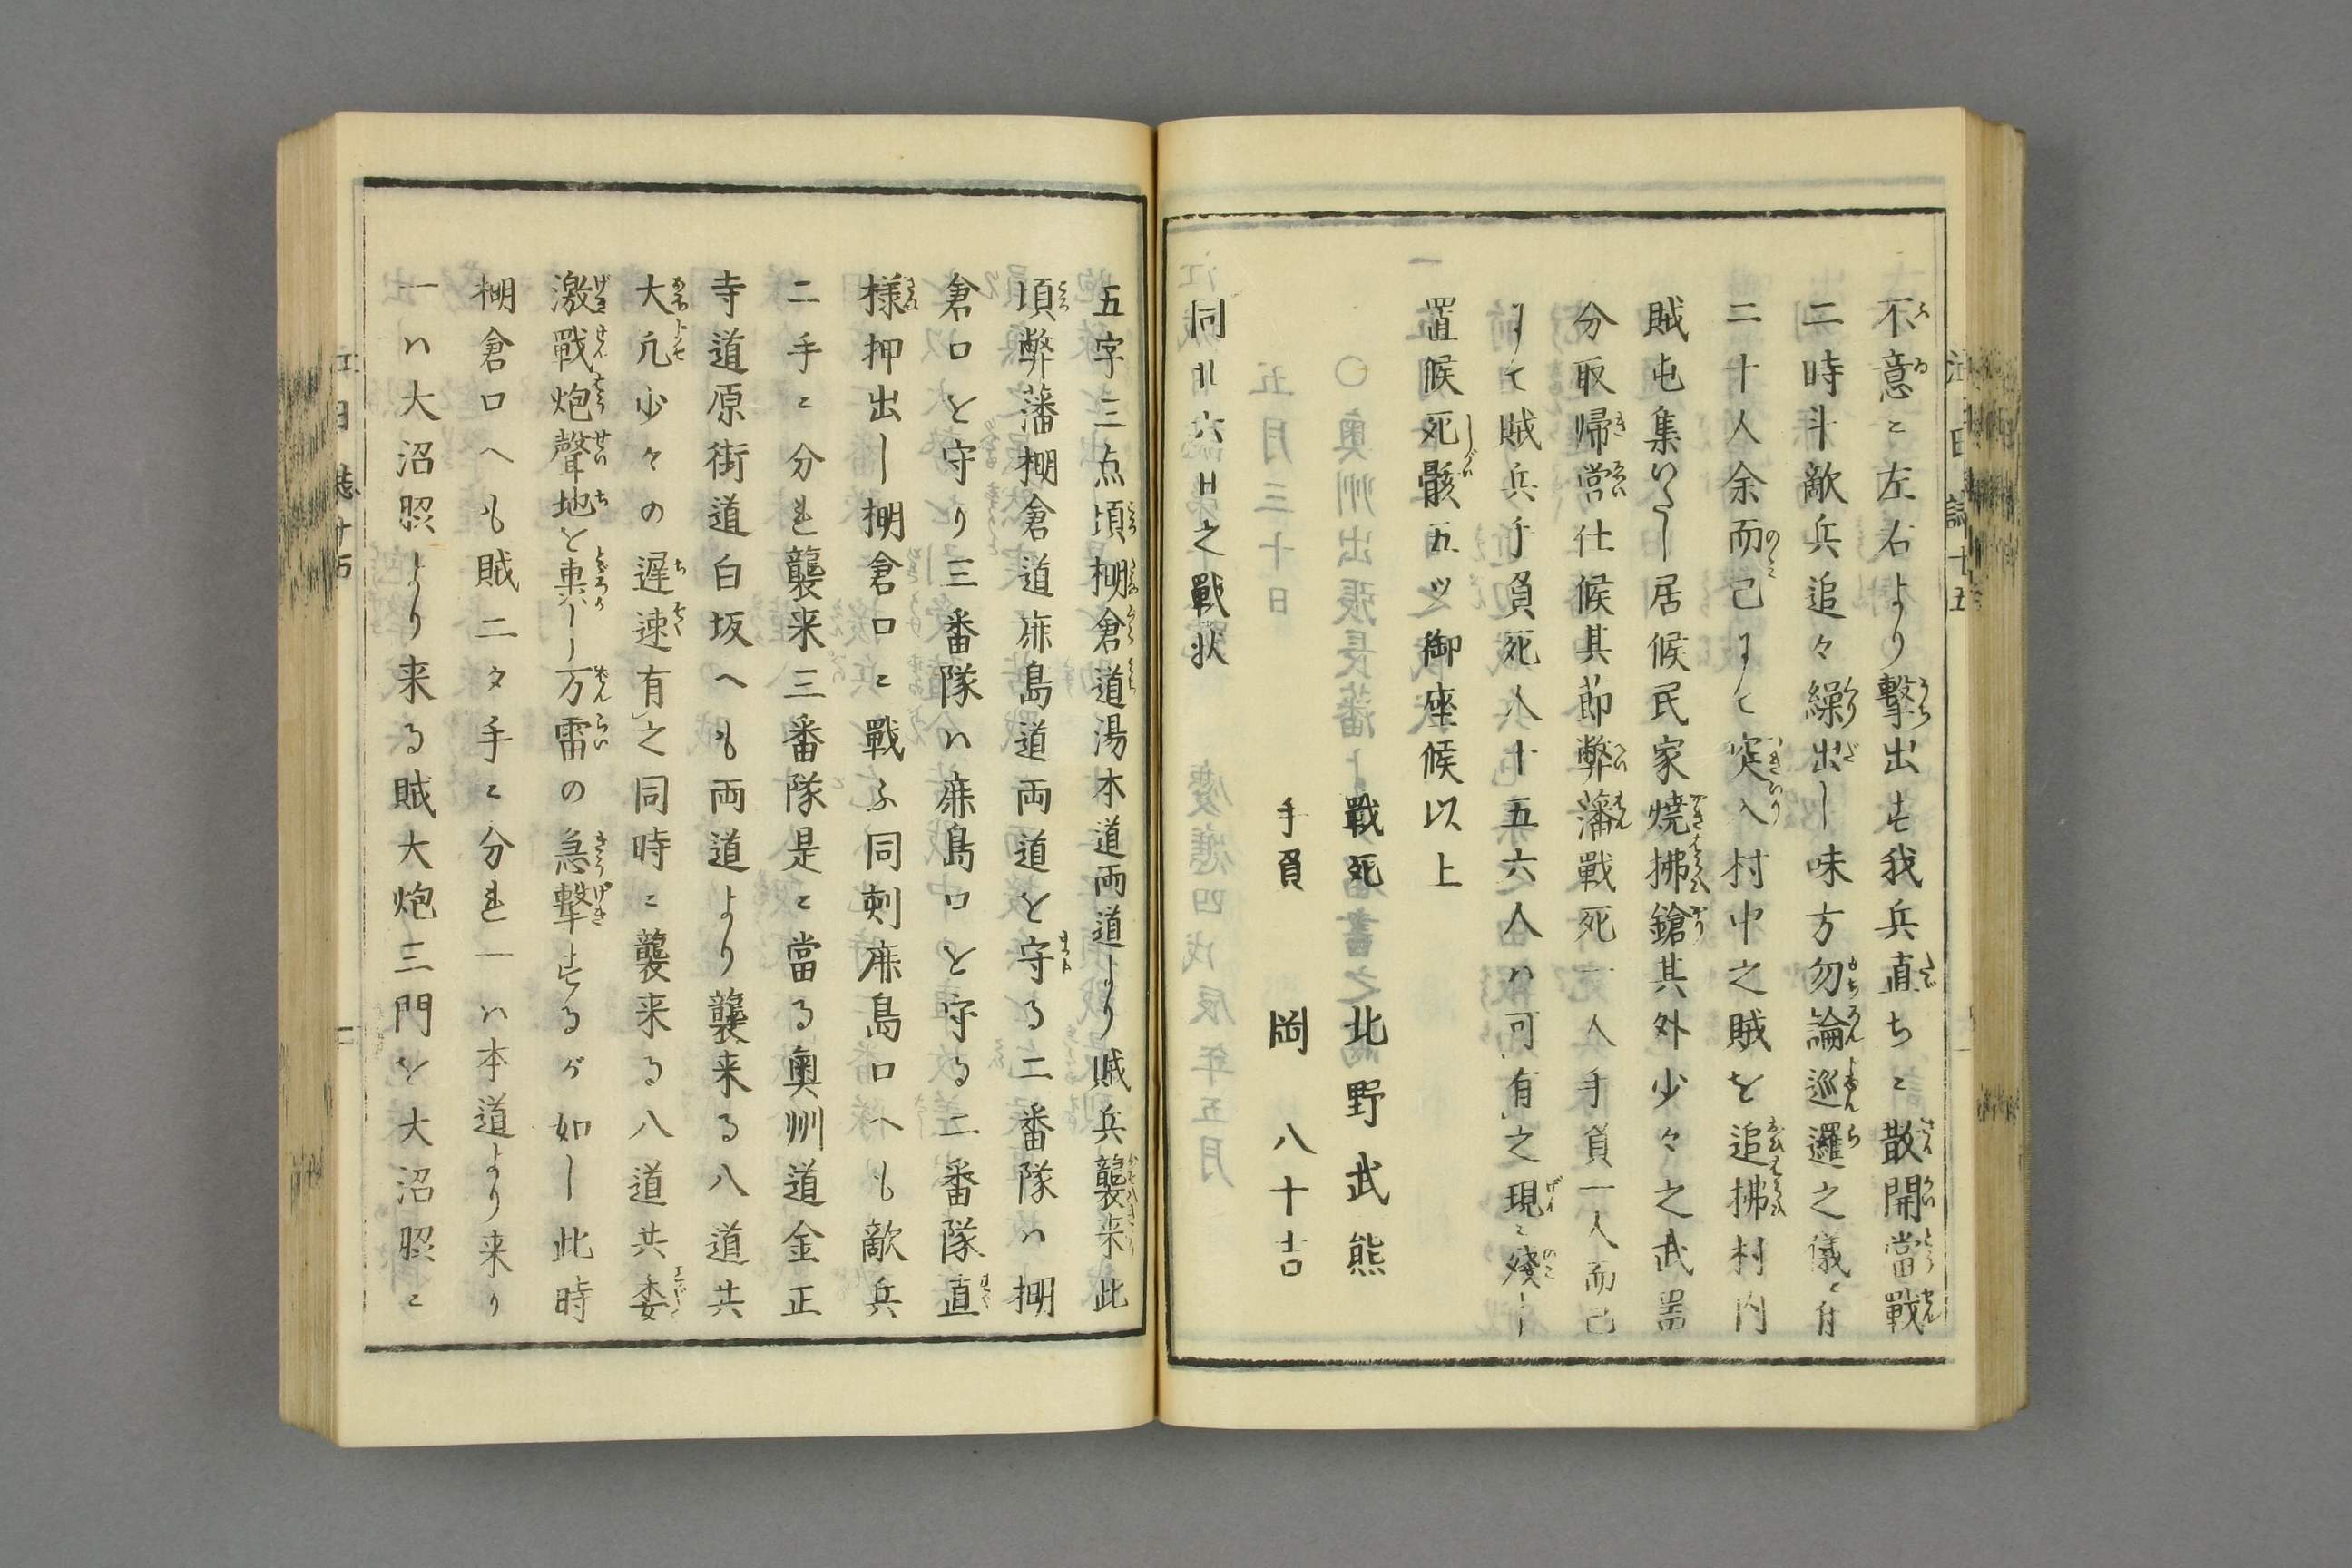 不意ニ左右より撃出す我兵直ちニ散開當戰
二時斗敵兵追々繰出し味方勿論巡邏之儀ニ付
二十人余而己にて突入村中之賊を追拂村内
賊屯集いたし居候民家燒拂鎗其外少々之武器
分取帰営仕候其節弊藩戰死一人手負一人而已
にて賊兵手負死人十五六人ハ可有之現ニ殘し
置候死骸五ツ御座候以上
戰死 北野武熊
手負 岡八十吉
同廿六日之戰状
五字三点頃棚倉道湯本道両道より賊兵襲来此
頃弊藩棚倉道麻島道両道を守る二番隊ハ棚
倉口を守り三番隊ハ麻島口を守る二番隊直
様押出し棚倉口ニ戰ふ同刻麻島口へも敵兵
二手ニ分れ襲来三番隊是ニ當る奥州道金正
寺道原街道白坂へも両道より襲来る八道共
大凢少々の遅速有之同時ニ襲来る八道共委
激戰炮聲地を轟し万雷の急撃するが如し此時
棚倉口へも賊二タ手ニ分れ一ハ本道より来り
一ハ大沼照より来る賊大炮三門を大沼照ニ
江日誌十五